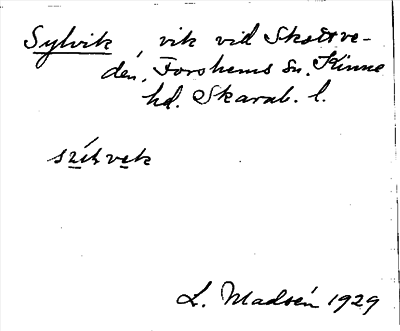 Sylvik, vik vid Skottve-
den, Forshems sn. Kinne
hd. Skarab. l.
L. Madsén 1929